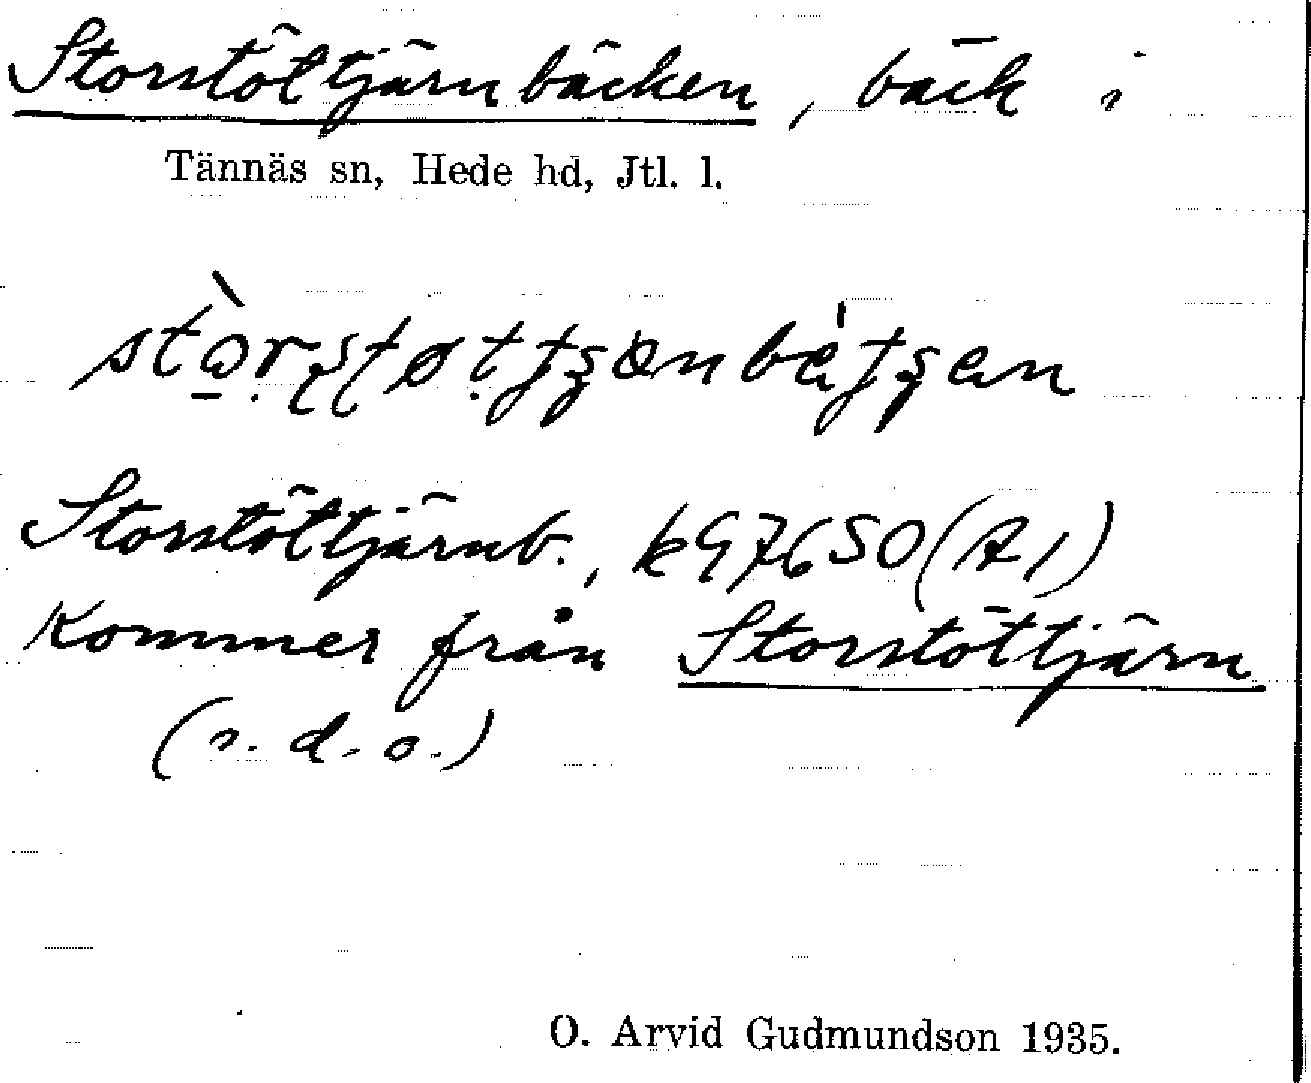 Storstöttjärnbäcken, bäck i
Tännäs sn, Hede hd, Jtl. l.
Storstöttjärnb., k97650 (A1)
Kommer från Storstöttjärn
(s. d. o.)
O. Arvid Gudmundson 1935.